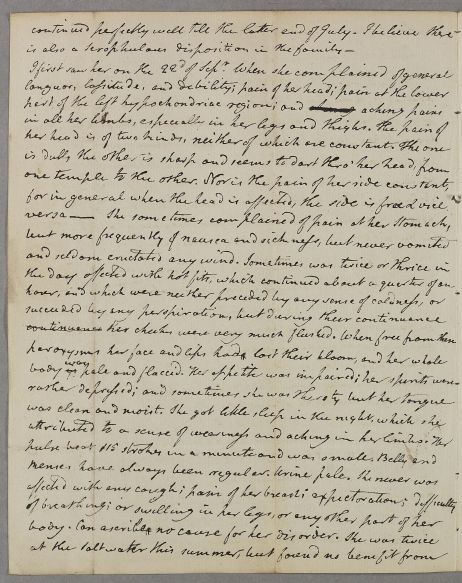 continued perfectly well till the latter end of July. I believe there
is also a Scrophulous disposition in the family—
I first saw her on the 22d of Sepr. When she complained of general
languor, lassitude, and debility; pain of her head; pain at the lower
part of the left hypochondriac region; and aching pains
in all her limbs, especially in her legs and thighs. The pain of
her head is of two kinds, neither of which are constant. The one
is dull, the other is sharp and seems to dart thro' her head, from
one temple to the other. Nor is the pain of her side constant,
for in general when the head is affected, the side is free & vice
versa— She sometimes complained of pain at her Stomach,
but more frequently of nausea and sickness, but never vomited
and seldom eructated any wind. Sometimes was twice or thrice in
the day affected with hot fits, which continued about a quarter of an
hour, and which were neither preceded by any sense of coldness, or
succeeded by any perspiration, but during their continuance
continuance her cheeks were very much flushed. When free from their
paroxysms her face and lips had lost their bloom, and her whole
body was pale and flaccid. Her appetite was impaired; her spirits were
rather depressed; and sometimes she was thirsty but her tongue
was clean and moist. She got little sleep in the night, which she
attributed to a sense of weariness and aching in her limbs. Her
pulse beat 116 strokes in a minute and was small. Belly and
menses have always been regular. Urine pale. She never was
affected with any cough; pain of her breast; expectoration; difficulty
of breathing; or swelling in her legs or any other part of her
body. Can ascribe no cause for her disorder. She was twice
at the salt water this summer, but found no benefit from